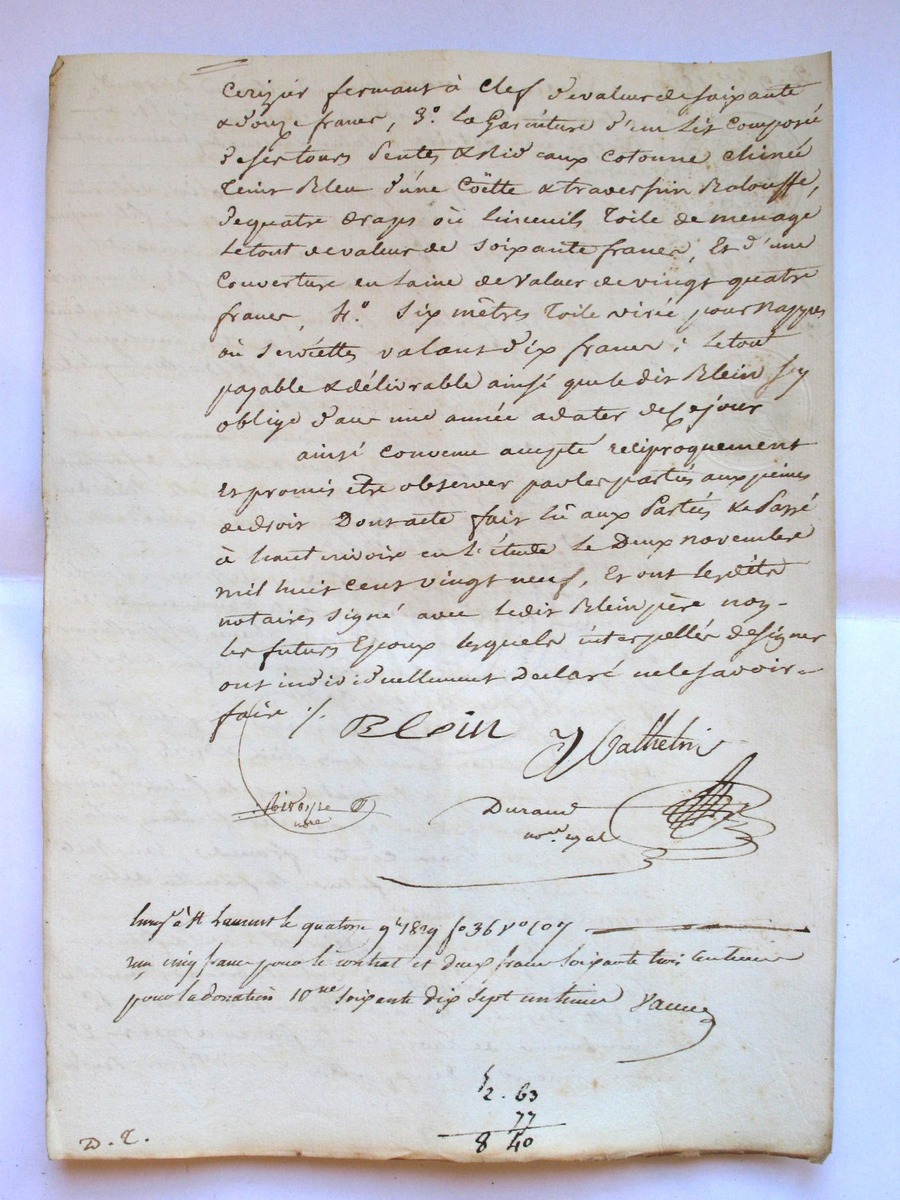 Cerizier fermant à Clef de valeur de Soixante
& douze francs, 3.o La Garniture d'un Lit Composé
de ses tours Pentes & Rideaux Cotonne chinée
teint Bleu d'une Coëtte & traversin Balouffe,
de quatre draps où Linceuils Toile de menage
Le tout de valeur de Soixante francs, Et d'une
Couverture en Laine de valeur de vingt quatre
francs, 4.o Six mètres Toile pour Nappes
où Serviettes valant dix francs; Le tout
payable & délivrable ainsi que le dit Blein s'y
oblige dans une année a dater de Ce jour
ainsi Convenu accepté réciproquement
Et promis être observer par les parties aux peines
de droit Dont acte fait Lû aux Parties & Passé
à hauterivoire en L'étude Le Deux novembre
mil huit Cent vingt neuf, Et ont Lesdits
notaires Signé avec Ledit Blein père non
les futurs Epoux lesquels interpellés de Signer
ont individuellement Déclaré ne le Savoir
faire ./.
Blein
nore
Durand
Enregé à St Laurent le quatorze 9bre 1829 fo 36 Vo 107
Reçu cinq francs pour le contrat et deux francs Soixante trois Centimes
pour la donation 10me Soixante dix Sept centimes
5
2. 63
77
8 40
D. T.